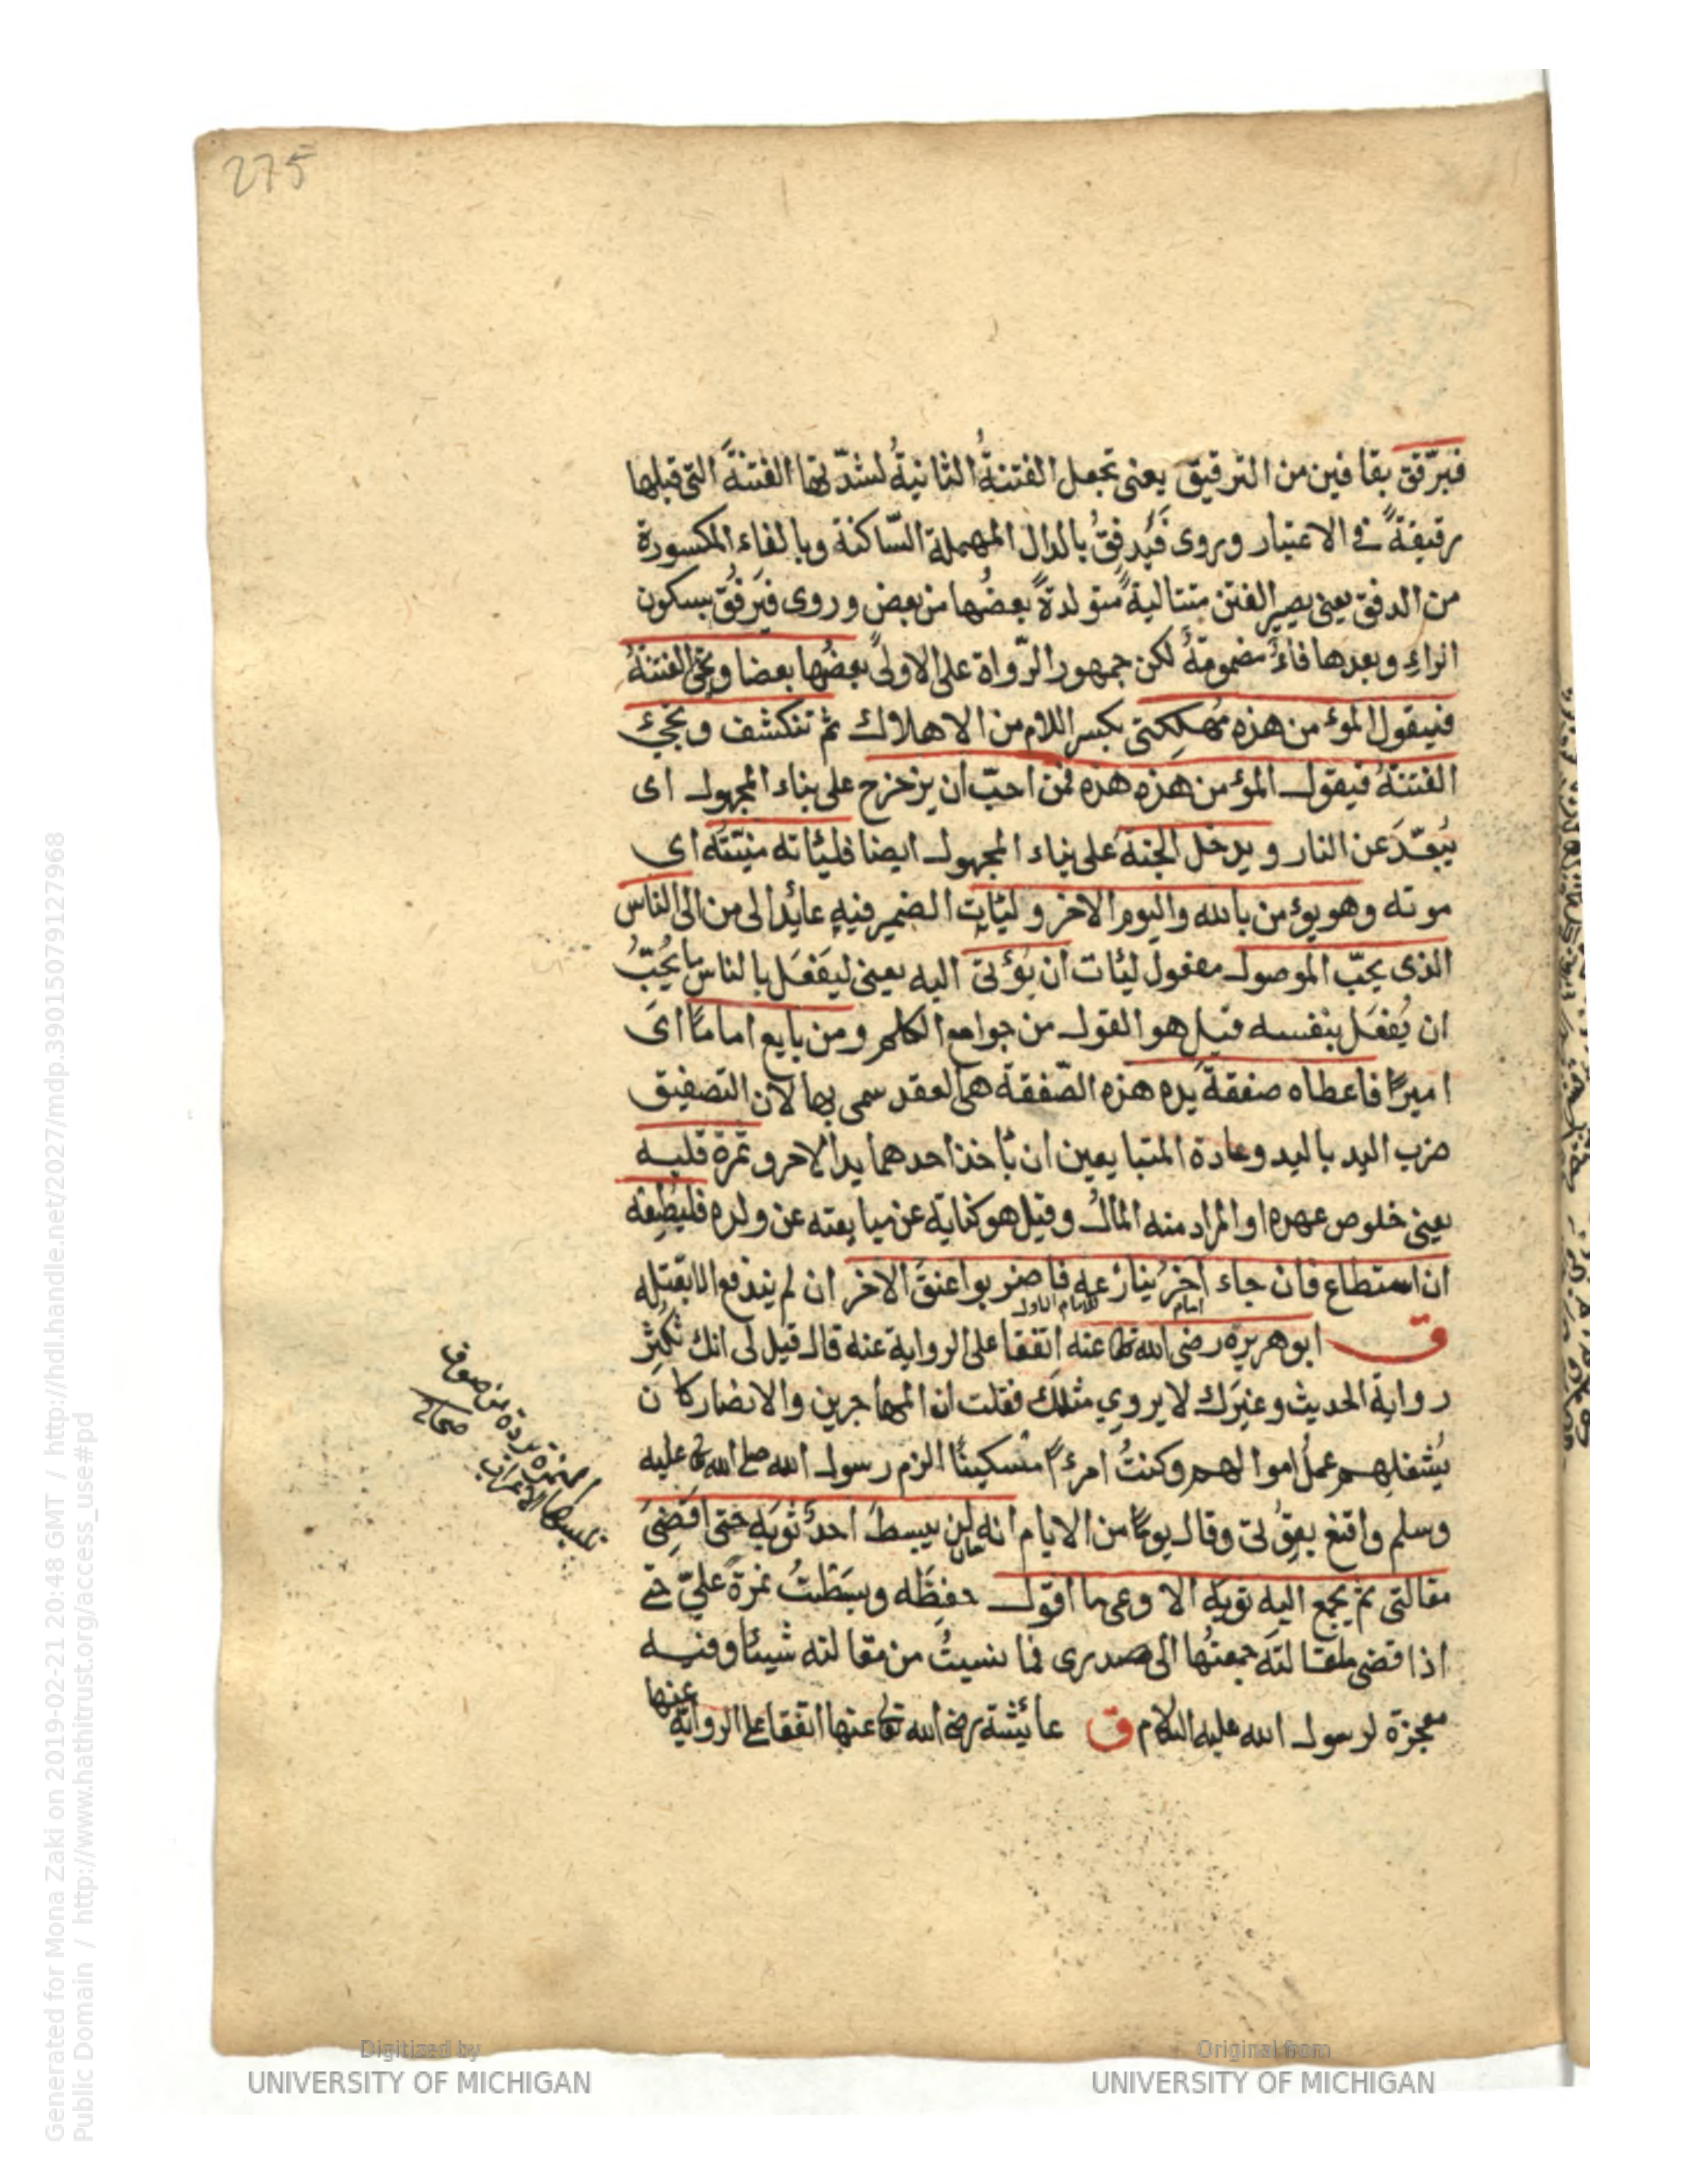 275
فيرقق بقافين من الترقيق يعنى تجعل الفتنةُ الثانيةُ لشدّتها الفتنةَ التى قبلها
رقيقةً فى الاعتبار وروى فَيُدفِقُ بالدال المهملة السّاكنة وبالفاء المكسورة
من الدفق يعنى يصير الفتن متتاليةً متولدةً بعضُها من بعض وروى فيَرفُق بسكون
الراءِ وبعدها فاءٌ مضمومةٌ لكن جمهور الرّواة على الاولى بعضُها بعضا وتجئ الفتنةُ
فيقول المؤمن هذه مُهلِكتى بكسر اللام من الاهلاك ثم تنكشف وتجئُ
الفتنةُ فيقول المؤمن هذه هذه فمن احبّ ان يزحزح على بناء المجهول اى
يُبعّدَ عن النار ويدخل الجنة على بناء المجهول ايضا فليئاته منيّتُه اى
موته وهو يؤمن بالله واليوم الاخر وليئات الضمير فيه عائد الى من الى الناس
الذى يحبّ الموصول مفعول ليئات ان يُؤتى اليه يعنى ليفعَل بالناس ما يُحِبُّ
ان يُفعَل بنفسه قيل هو القول من جوامع الكلم ومن بايع اماما اى
اميرًا فاعطاه صفقةَ يده هذه الصّفقة هى العقد سمى بها لان التصفيق
ضرب اليد باليد وعادة المتبايعين ان ياخذ احدهما يد الاخر وثمرة قلبه
يعنى خلوص عهده او المراد منه المال وقيل هو كناية عن مبايعته عن ولده فليُطِعْه
ان استطاع فان جاء اخرُ ينازعه فاضربوا عنقَ الاخر ان لم يندفع الا بقتله
امام للامام الاول
ق ابو هريرة رضى الله تعا عنه اتفقا على الرواية عنه قال قيل لى انك تُكثِر
رواية الحديث وغيرَك لا يروي مثلك فقلت ان المهاجرين والانصار كان
يُشغِلهم عملُ اموالهم وكنتُ امرءً مسكينًا الزم رسول الله صلى الله تعا عليه
وسلم واقنع بقُوتى وقال يومًا من الايام انه لن يبسط احدٌ ثوبَه حتى اَقضِىَ
مقالتى ثم يجمع اليه ثوبَه الا وعى ما اقول حفِظَه وبسَطتُ نمرةً عليّ حتى
اذا قضى مقالته جمعتُها الى صدرى فما نسيتُ من مقالته شيئا وفيه
معجزة لرسول الله عليه السلام ق عائشة رضى الله تعا عنها اتفقا على الرواية عنها
النمرة بردة من صوف
يلبسها الاعراب صحاح
Digitized by
UNIVERSITY OF MICHIGAN
Original from
UNIVERSITY OF MICHIGAN
Generated for Mona Zaki on 2019-02-21 20:48 GMT / http://hdl.handle.net/2027/mdp.39015079127968
Public Domain / http://www.hathitrust.org/access_use#pd